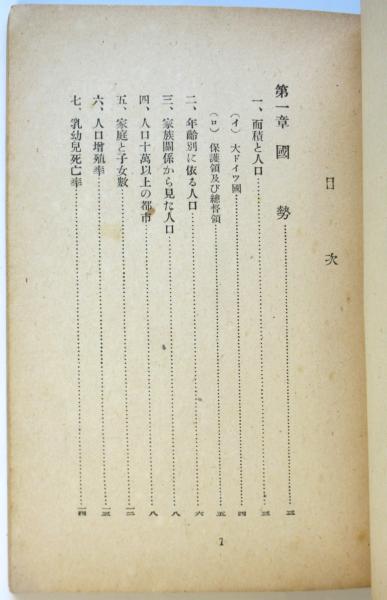 目次
第一章 國勢……三
一、面積と人口……三
(イ) 大ドイツ國……四
(ロ) 保護領及び總督領……五
二、年齡別に依る人口……六
三、家族關係から見た人口……八
四、人口十萬以上の都市……八
五、家庭と子女數……一二
六、人口增殖率……一三
七、乳幼兒死亡率……一四
1